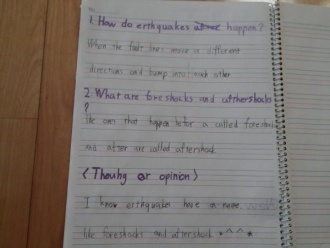 1. How do erthquakes happen?
When the falt lines move in different
directions and bump into each other
2. What are foreshocks and afthershocks
?
The ones that happen befor a called foreshock
and after are called aftershock
(Thouhg or opinion)
I know erthquake have a name
like foreshocks and aftershock *^^*